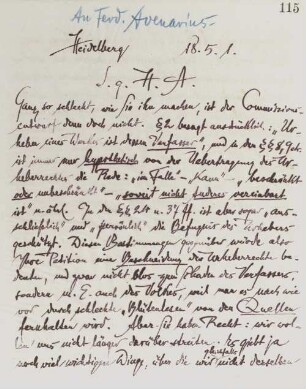 115
An Ferd. Avenarius.
Heidelberg 18.5.1.
S. g. H. A.
Ganz so schlecht, wie Sie ihn machen, ist der Commissions-
entwurf denn doch nicht. § 2 besagt ausdrücklich: „Ur-
heber eines Werkes ist dessen Verfasser", und in den §§ 8, 9 ist
ist immer nur hypothetisch von der Uebertragung des
Urheberrechts die Rede: „im Falle" – „kann" –, „beschränkt
oder unbeschränkt" – „soweit nicht Anderes vereinbart
ist" u. ähnl. In den §§ u. 34 ff. ist aber sogar „aus-
schließlich" und „persönlich" die Befugnis des Urhebers
geschützt. Diesen Bestimmungen gegenüber würde also
Ihre Petition eine Beschneidung der Urheberrechte be-
deuten, und zwar nicht blos zum Schaden des Verfassers,
sondern m. E. auch des Volkes, weil man es nach wie
vor durch schlechte „Blütenlesen" von den Quellen
fernhalten wird. Aber Sie haben Recht: wir wol-
len uns nicht länger darüber streiten. Es giebt ja
noch viel wichtigere Dinge, über die wir gleichfalls nicht derselben